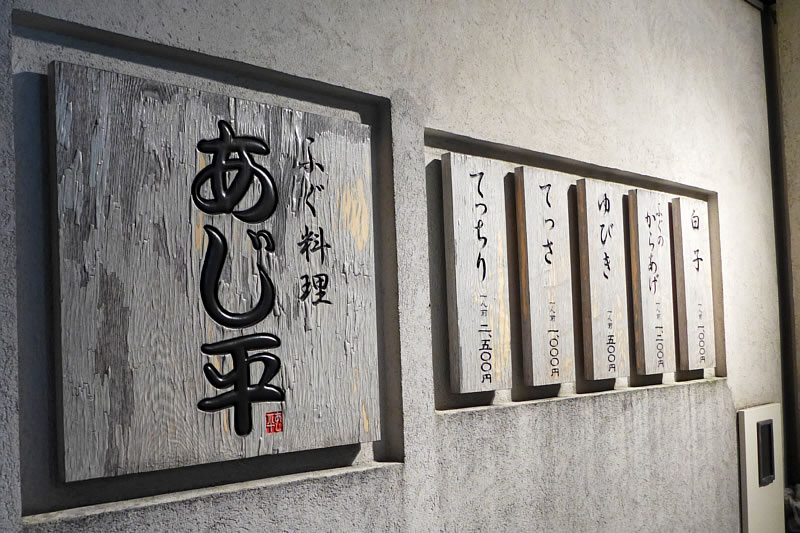 ふぐ料理
あじ平
てっちり
一人前 二、五〇〇円
てっさ
一人前 一、〇〇〇円
ゆびき
一人前 五〇〇円
ふぐの
からあげ
一人前 一、二〇〇円
白子
一人前 一、〇〇〇円